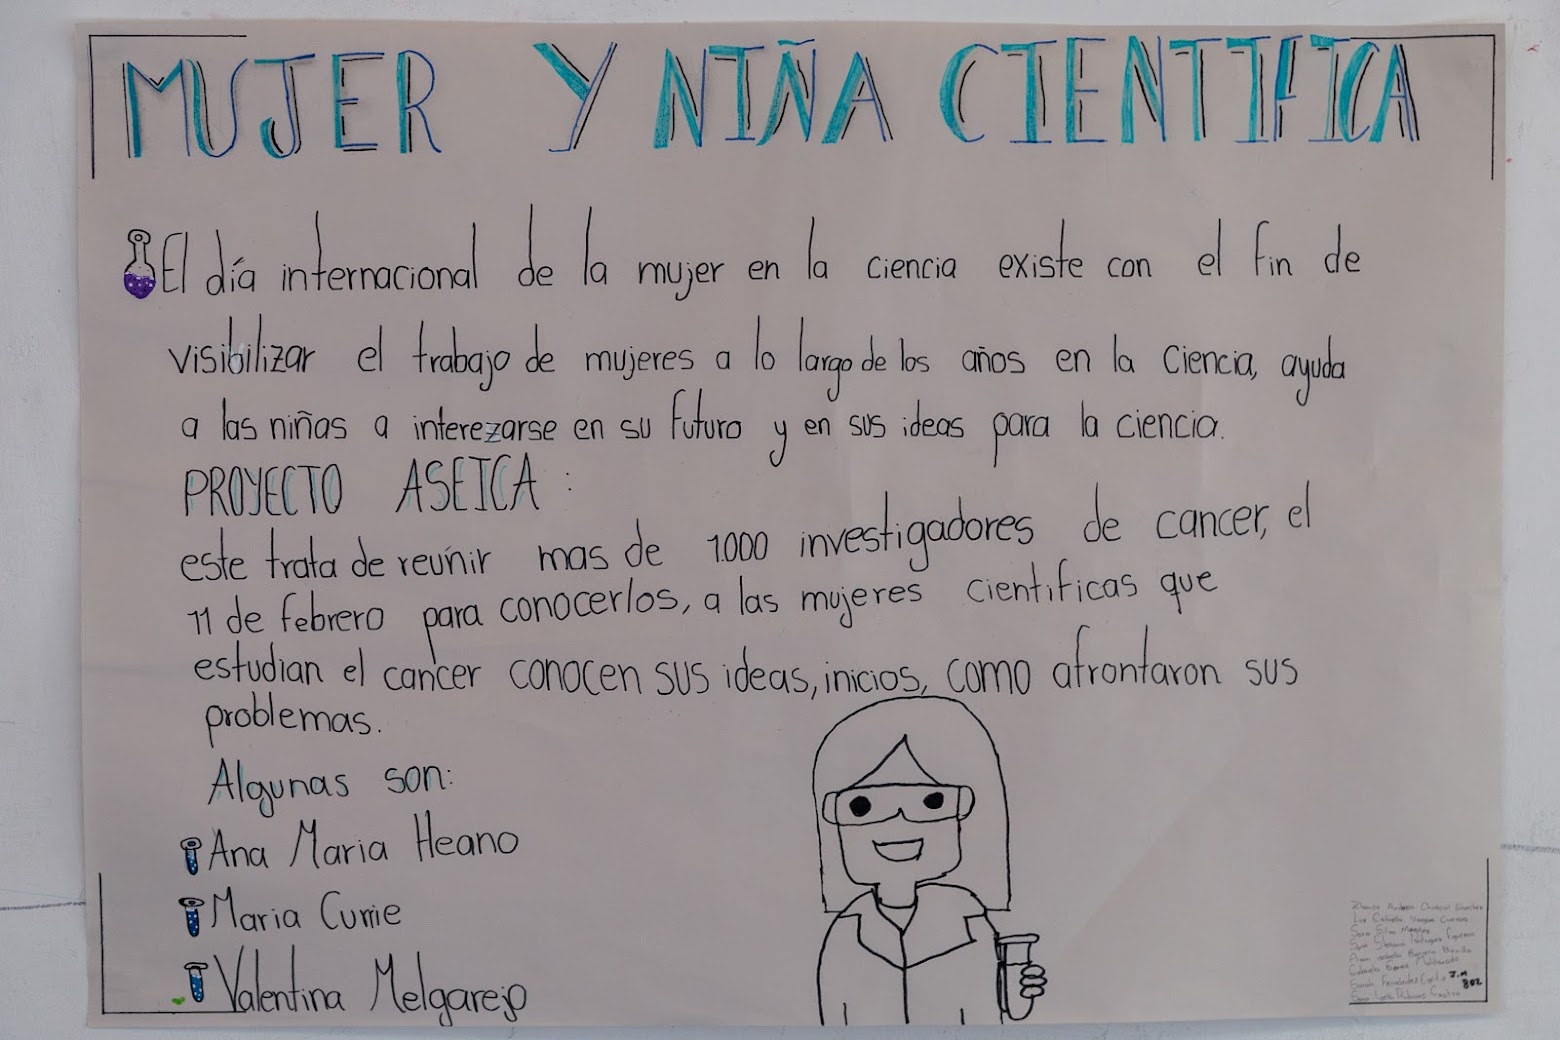 MUJER Y NIÑA CIENTIFICA
El día internacional de la mujer en la ciencia existe con el fin de
visibilizar el trabajo de mujeres a lo largo de los años en la ciencia, ayuda
a las niñas a interezarse en su futuro y en sus ideas para la ciencia.
PROYECTO ASEICA:
este trata de reunir mas de 1000 investigadores de cancer, el
11 de febrero para conocerlos, a las mujeres cientificas que
estudian el cancer conocen sus ideas, inicios, como afrontaron sus
problemas.
Algunas son:
Ana Maria Heano
Maria Currie
Valentina Melgarejo
J.M
802